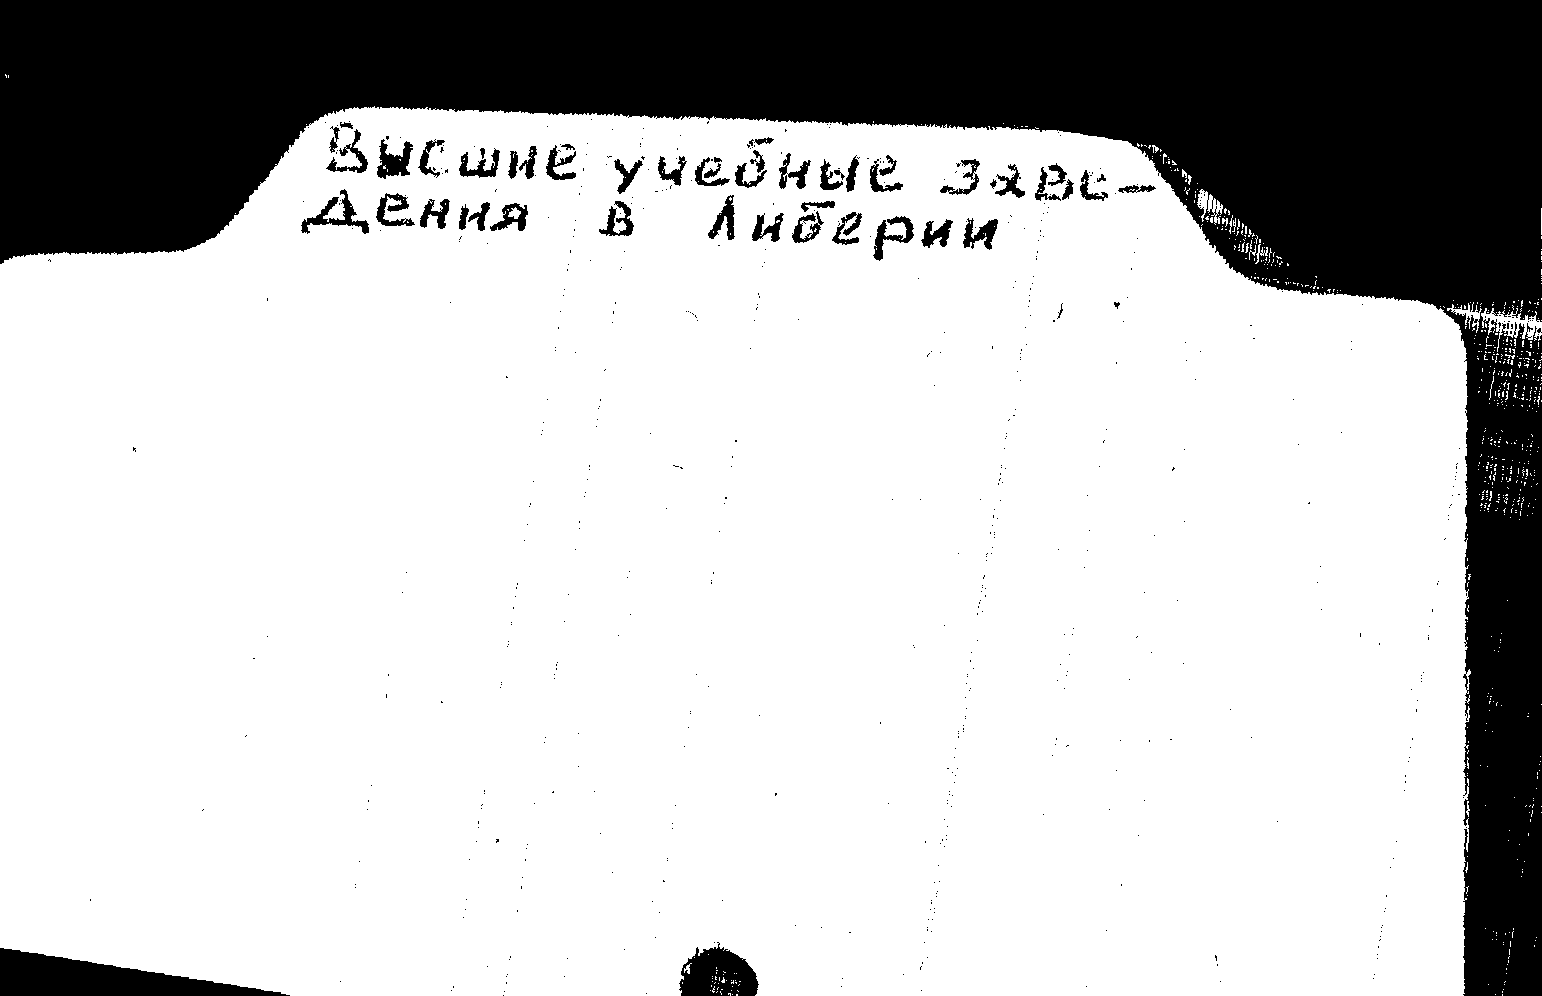 Высшие учебные заве-
дения в Либерии